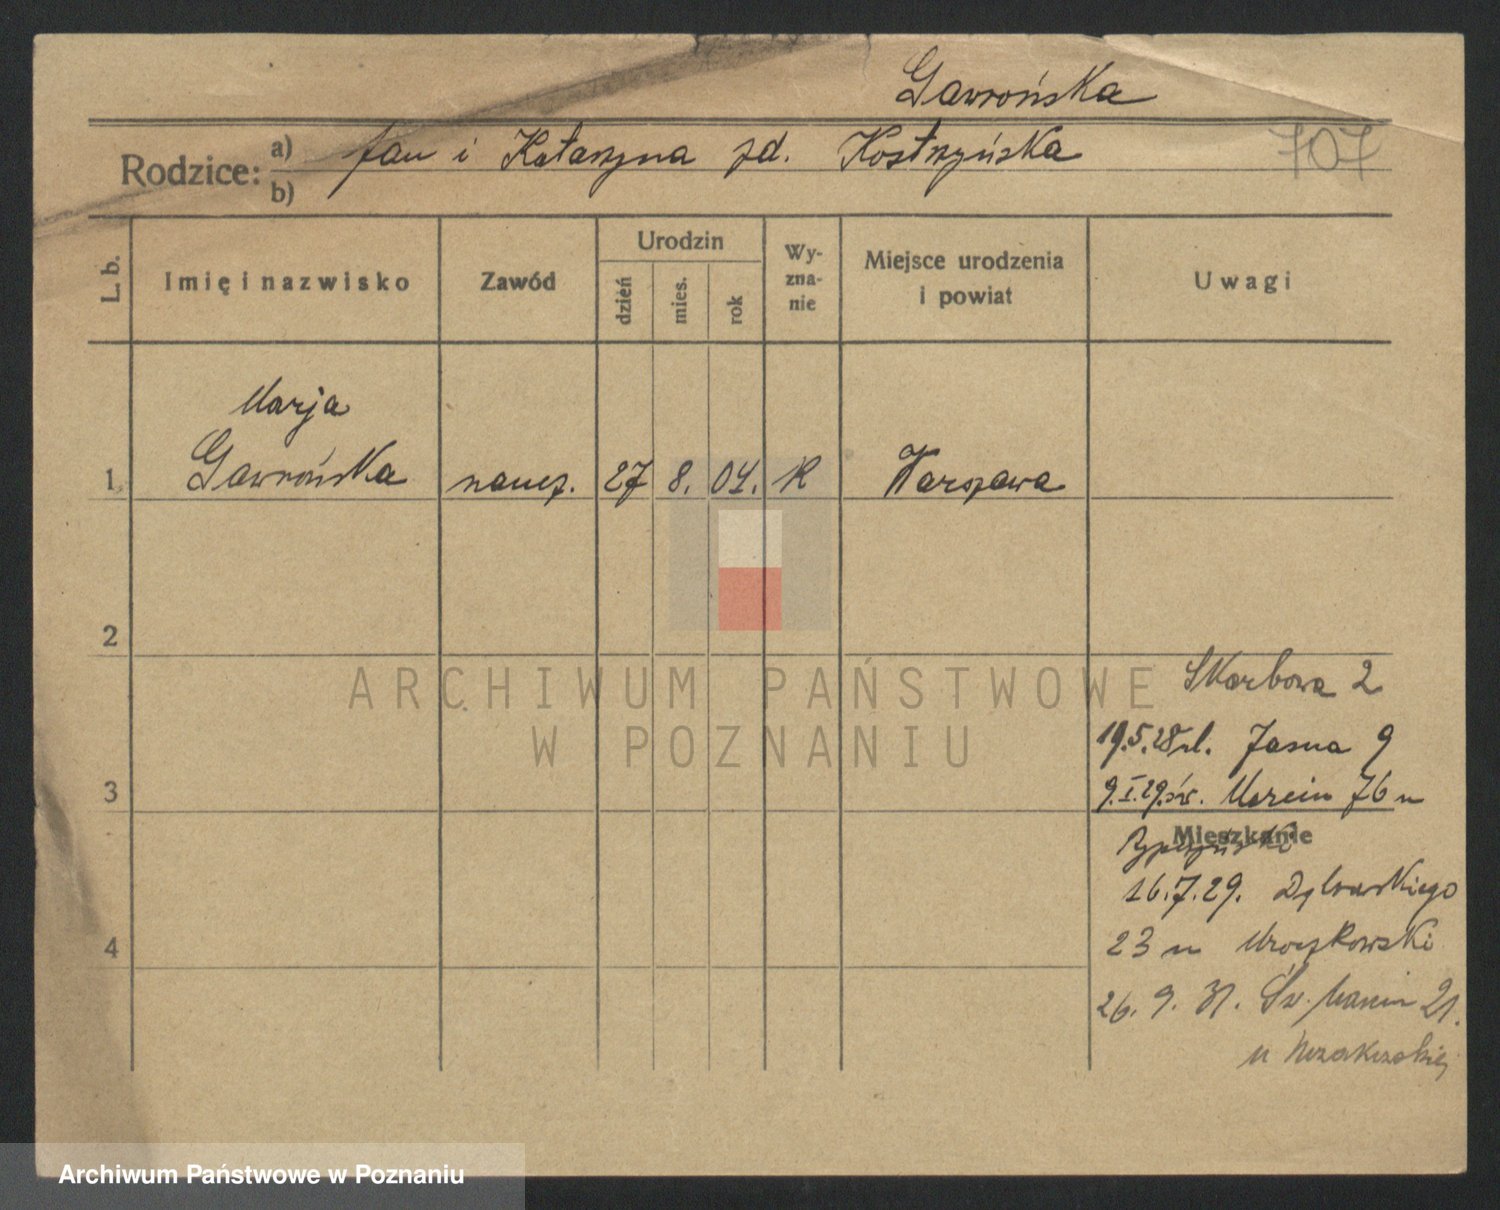 Gawrońska
Rodzice: a) Jan i Katarzyna zd. Kostrzyńska 707
b)
L. b. Imię i nazwisko Zawód Urodzin dzień mies. rok Wyznanie Miejsce urodzenia i powiat Uwagi
Marja
1. Gawrońska naucz. 27 8. 04. K Warszawa
2
Skarbowa 2
19.5.28 Jasna 9
3
9.I.29. św. Marcin 76 u
Mieszkanie
16.7.29. Dąbrowskiego
4
23 u Mroczkowski
26. 9. 31. Św. Marcin 21.
u
ARCHIWUM PAŃSTWOWE
W POZNANIU
Archiwum Państwowe w Poznaniu